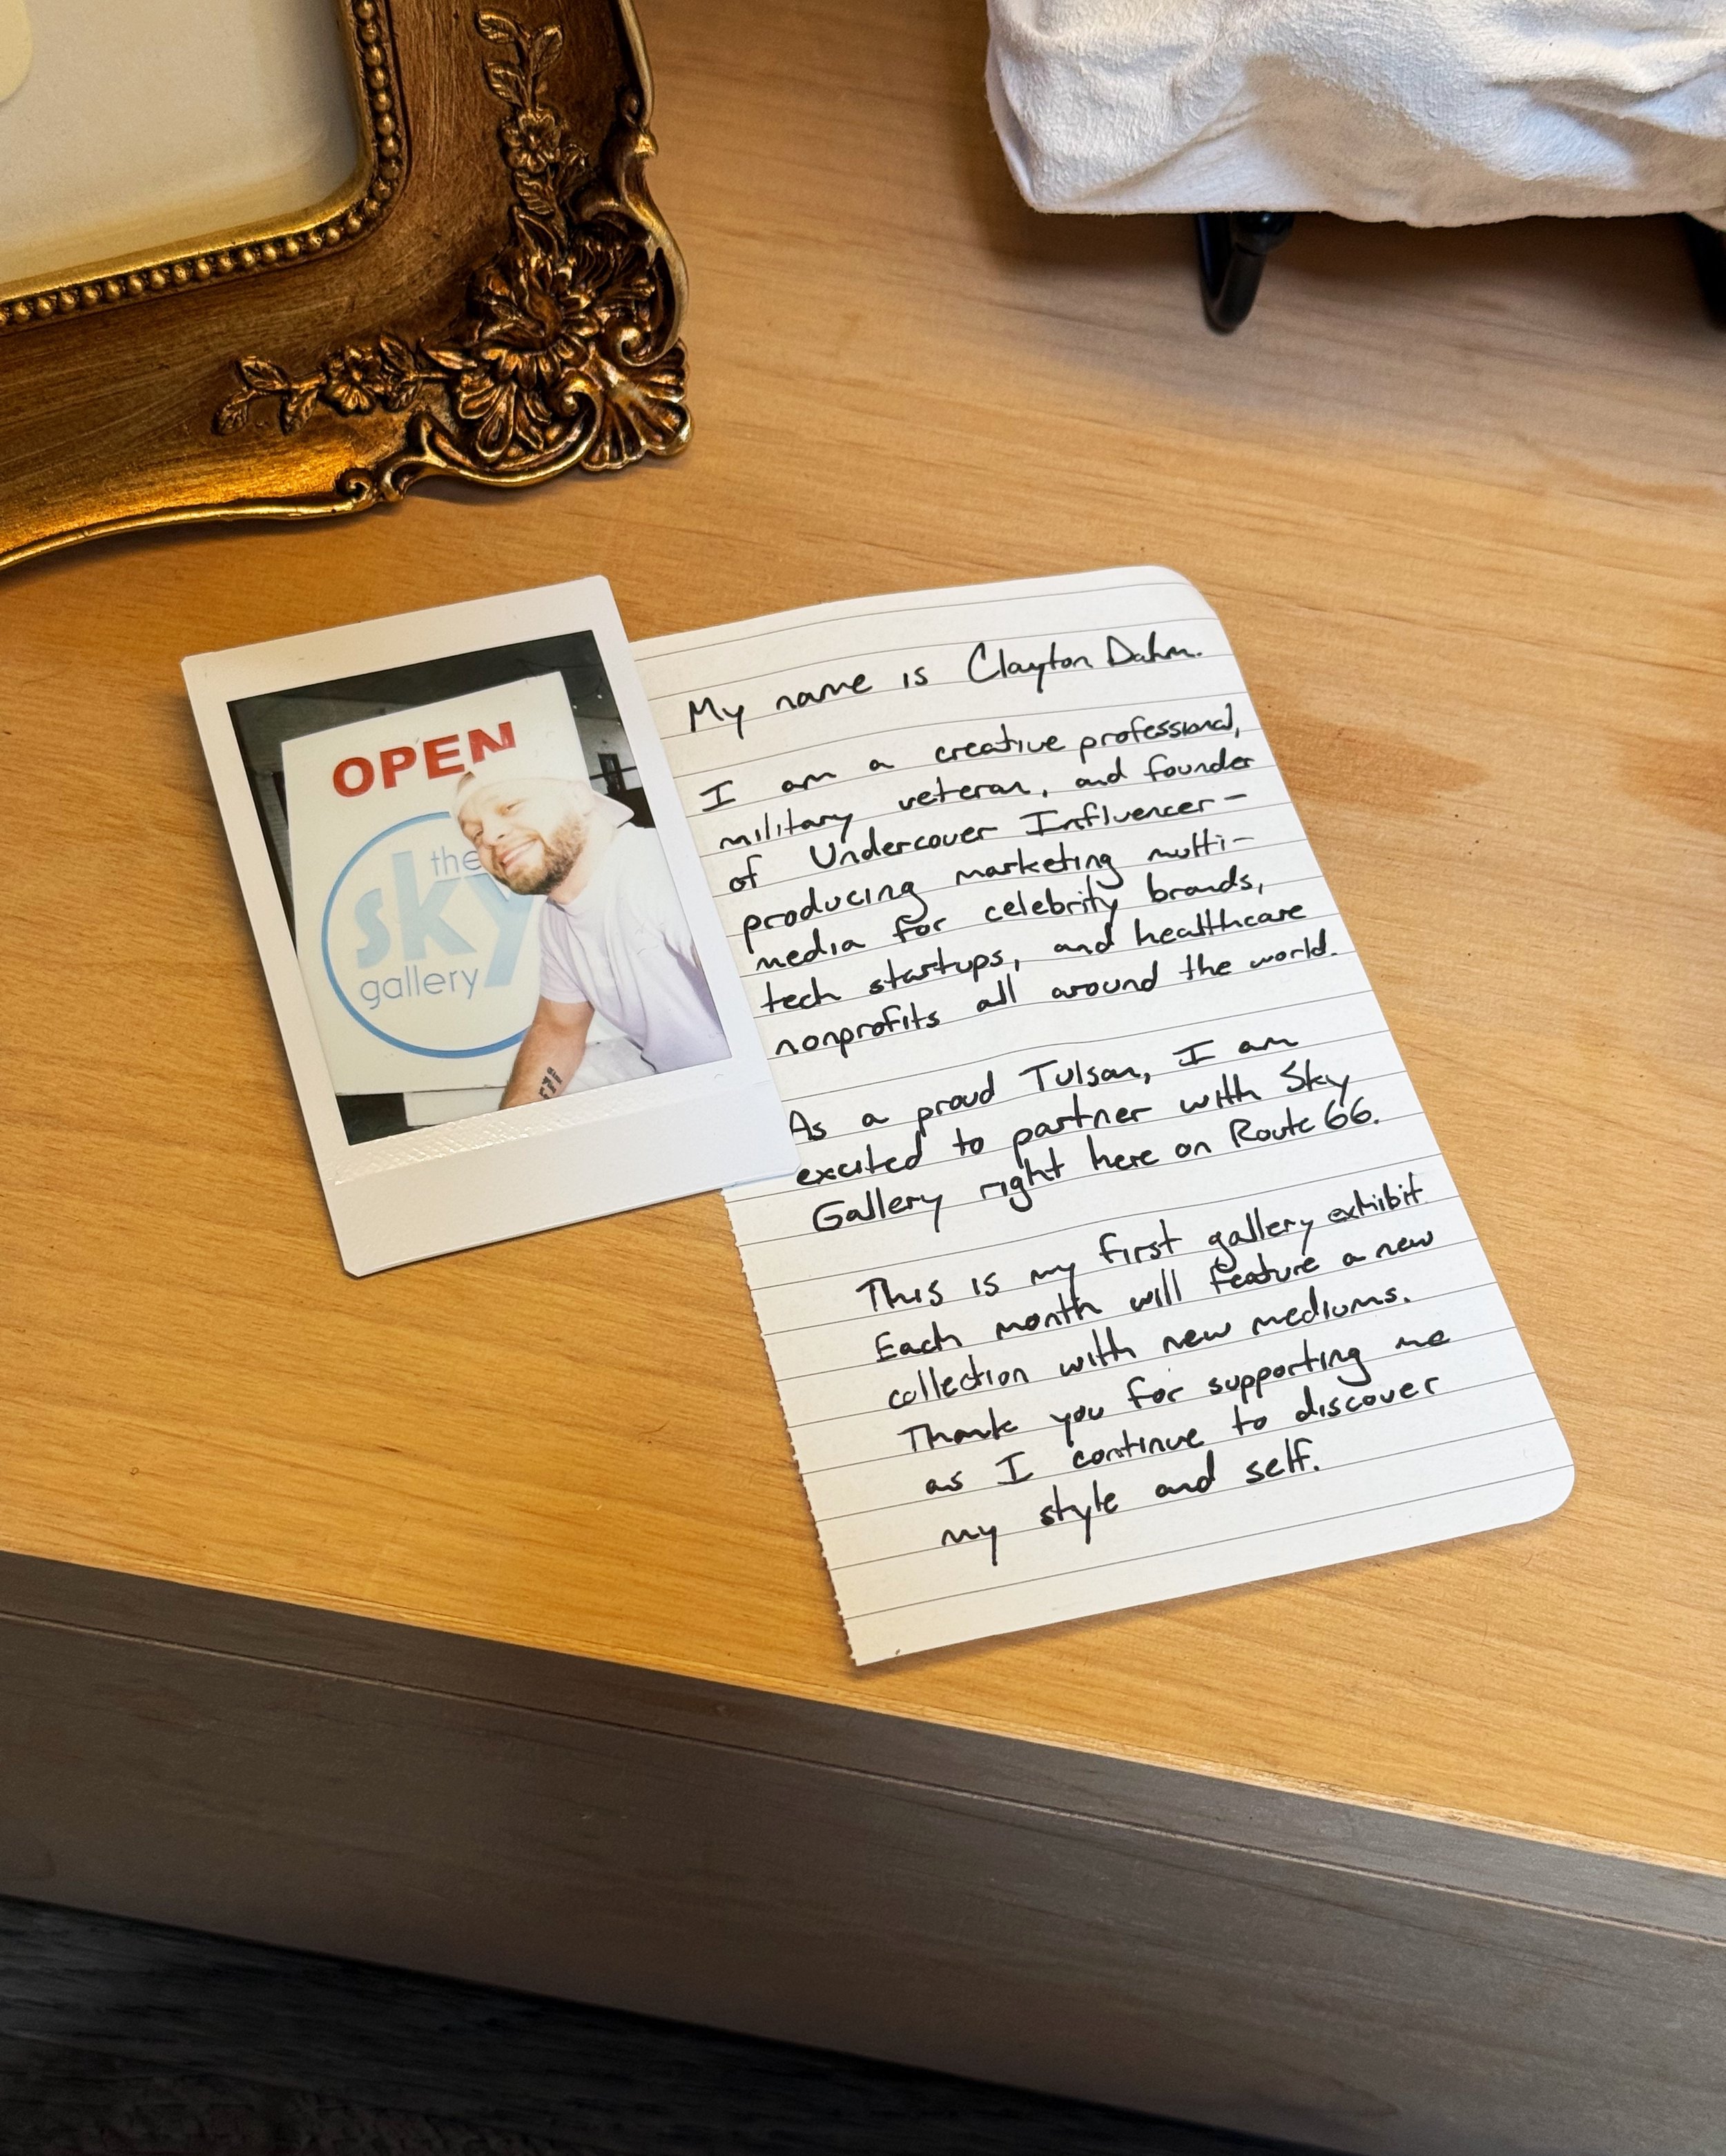 OPEN
the
sky
gallery
My name is Clayton Dahm.
I am a creative professional,
military veteran, and founder
of Undercover Influencer-
producing marketing multi-
media for celebrity brands,
tech startups, and healthcare
nonprofits all around the world.
As a proud Tulsan, I am
excited to partner with Sky
Gallery right here on Route 66.
This is my first gallery exhibit
Each month will feature a new
collection with new mediums.
Thank you for supporting me
as I continue to discover
my style and self.